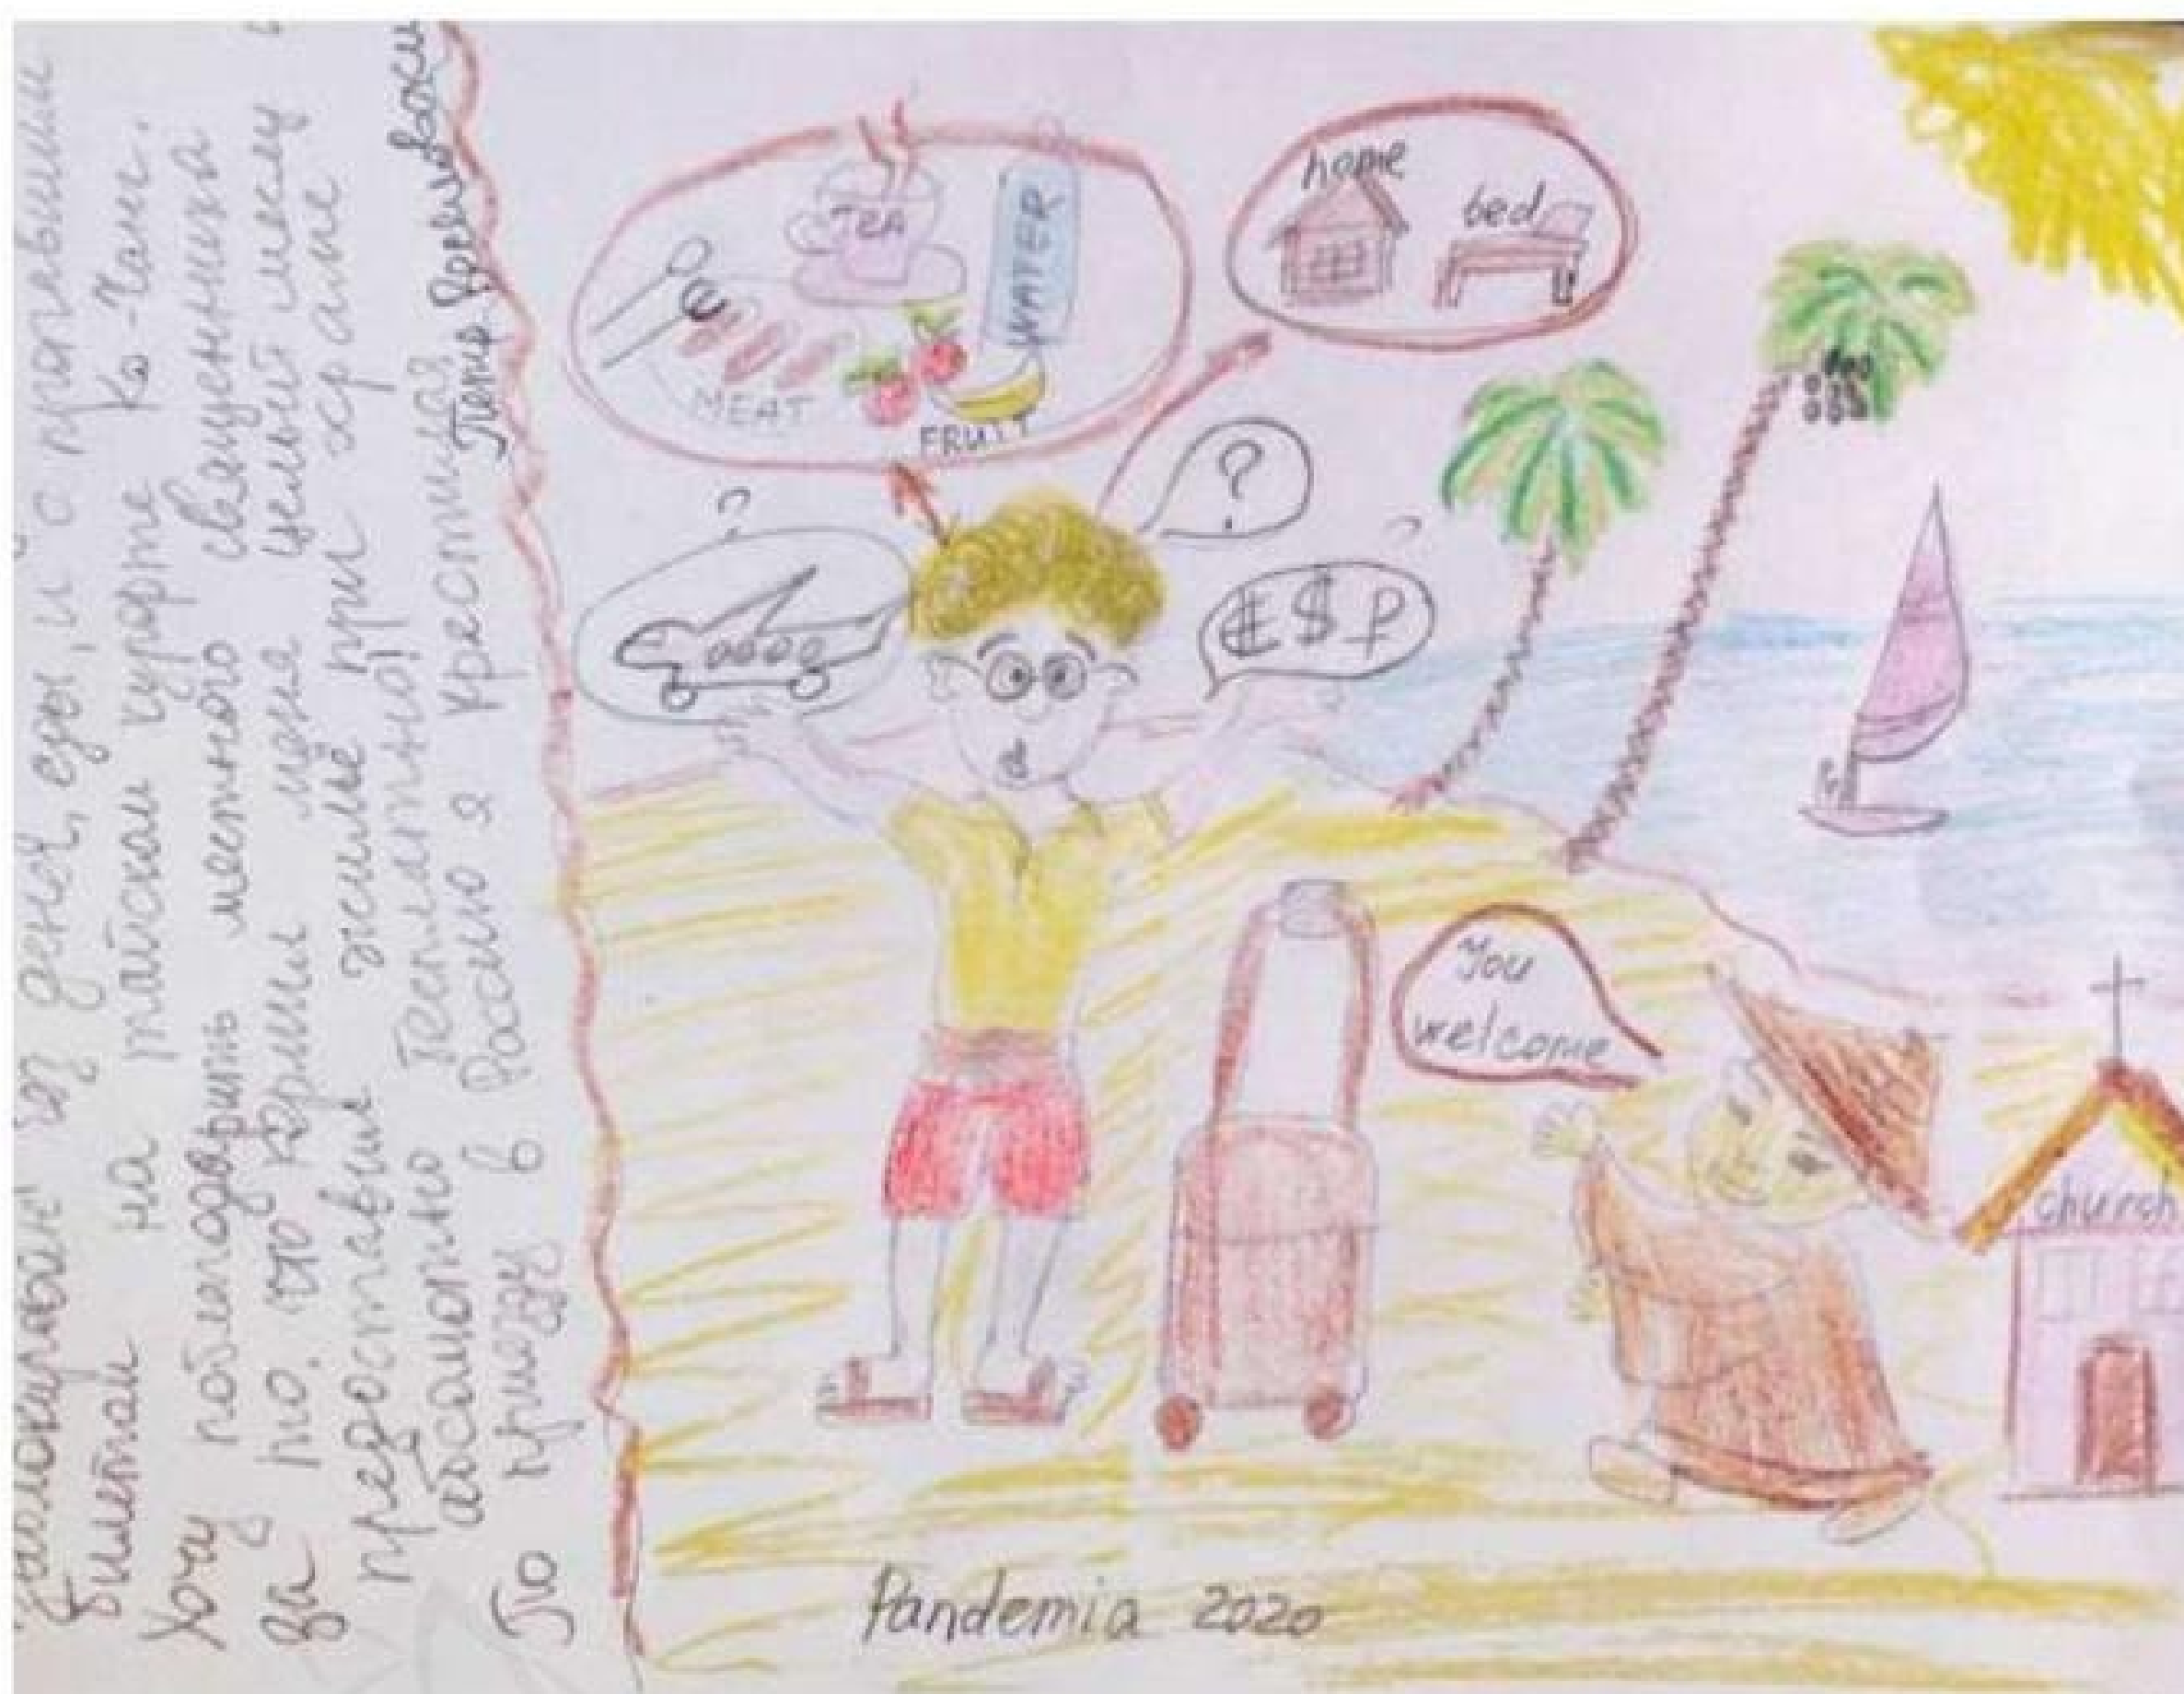 заблокирован без денег, еды, и с пропавшим
билетом на тайском курорте Ко-Чанг.
Хочу поблагодарить местного священника
за то, что кормил меня целый месяц и
предоставил жилье при храме
абсолютно бесплатно!
По приезду в Россию я крестился
Петр
TEA
WATER
MEAT
FRUIT
home
bed
?
?
?
?
€ $ ₽
You
welcome
church
Pandemia 2020